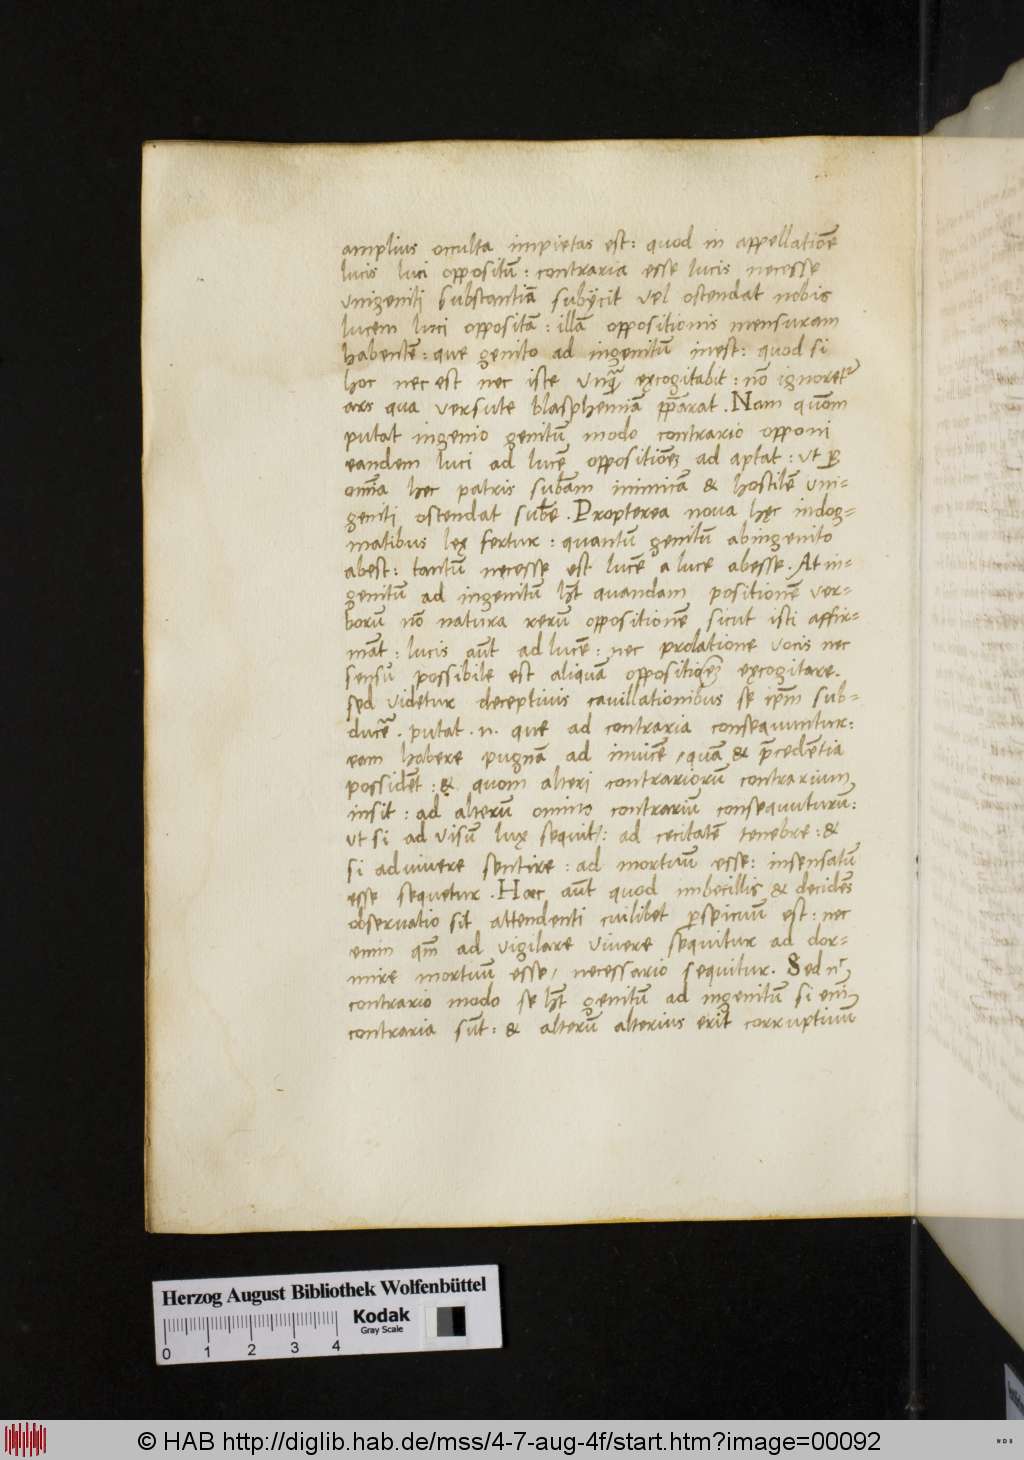 amplius occulta impietas est: quod in appellatiōe
lucis luci oppositū: contraria esse lucis necesse
vnigeniti substantiā subijcit vel ostendat nobis
lucem luci oppositā: illā oppositionis mensuram
habentē: que genito ad ingenitū inest: quod si
hoc nec est nec iste vnq̄ excogitabit: nō ignoret
ars qua versute blasphemiā p̄parat. Nam quōm
putat ingenio genitū modo contrario opponi
eandem luci ad lucē oppositionē ad aptat: vt per
omīa hec patris subāam inimicā & hostilē vni-
geniti ostendat subē. Propterea nova hęc in dog-
matibus lex fertur: quantū genitū ab ingenito
abest: tantū necesse est lucē a luce abesse. At in-
genitū ad ingenitū ht̄ quandam positionē ver-
borū nō natura rerū oppositionē sicut isti affir-
māt: lucis aūt ad lucē: nec prolatione vocis nec
sensu possibile est aliquā oppositionē excogitare.
sed videtur deceptivis cavillationibus se ip̄m sub-
ducē. putat .n. que ad contraria consequuntur:
eam habere pugnā ad invicē, quā & p̄cedētia
possidēt: & quom alteri contrariorū contrarium
insit: ad alterū omino contrariū consequuturū:
vt si ad visū lux sequit: ad cecitatē tenebre: &
si ad vivere sentire: ad mortuū esse: insensatū
esse sequetur. Hæc aūt quod imbecillis & decidēs
observatio sit attendenti cuilibet perspicuū est: nec
enim qm̄ ad vigilare vivere sequitur ad dor-
mire mortuū esse, necessario sequitur. Sed n
contrario modo se ht̄ genitū ad ingenitū si enī
contraria sūt: & alterū alterius erit corruptivū
Herzog August Bibliothek Wolfenbüttel
Kodak
Gray Scale
0 1 2 3 4
© HAB http://diglib.hab.de/mss/4-7-aug-4f/start.htm?image=00092